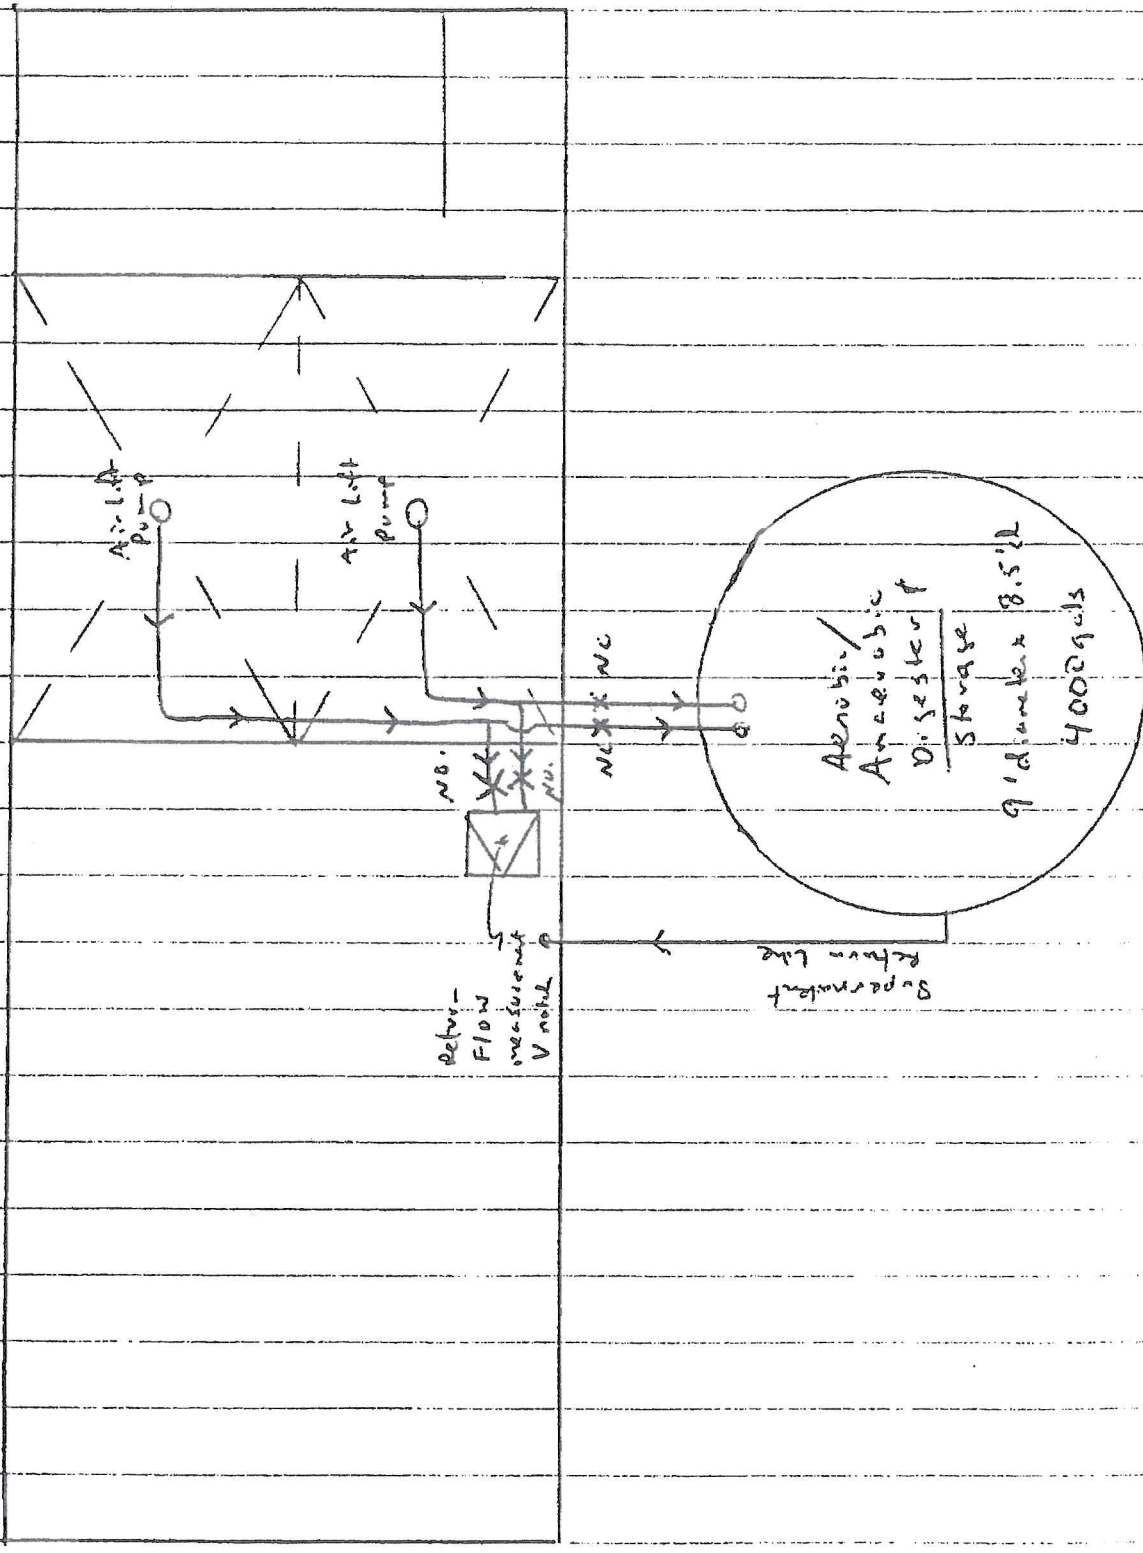 Air Lift
Pump
Air Lift
Pump
NC
NC
NO.
NO.
Aerobic/
Anaerobic
Digester &
Storage
9' diameter 8.5'
4000 gals
Return
Flow
measurement
V notch
Supernatent
Return Line